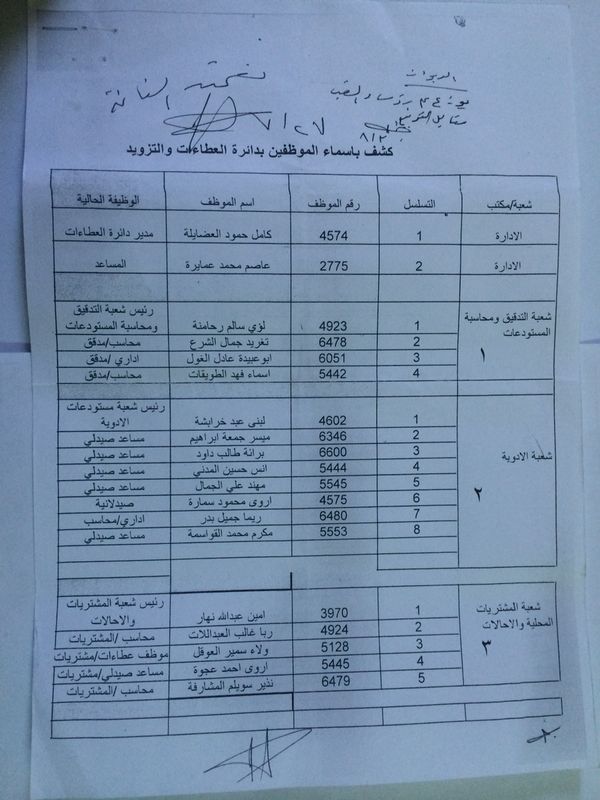 الديوان
٨/٢
٧/٢٧
كشف باسماء الموظفين بدائرة العطاءات والتزويد
شعبة/مكتب التسلسل رقم الموظف اسم الموظف الوظيفة الحالية
الادارة 1 4574 كامل حمود العضايلة مدير دائرة العطاءات
الادارة 2 2775 عاصم محمد عمايرة المساعد
شعبة التدقيق ومحاسبة المستودعات
١
1 4923 لؤي سالم رحامنة رئيس شعبة التدقيق ومحاسبة المستودعات
2 6478 تغريد جمال الشرع محاسب/مدقق
3 6051 ابوعبيدة عادل الغول اداري /مدقق
4 5442 اسماء فهد الطويقات محاسب/مدقق
شعبة الادوية
٢
1 4602 لبنى عبد خرابشة رئيس شعبة مستودعات الادوية
2 6346 ميسر جمعة ابراهيم مساعد صيدلي
3 6600 برائة طالب داود مساعد صيدلي
4 5444 انس حسين المدني مساعد صيدلي
5 5545 مهند علي الجمال مساعد صيدلي
6 4575 اروى محمود سمارة صيدلانية
7 6480 ريما جميل بدر اداري/محاسب
8 5553 مكرم محمد القواسمة مساعد صيدلي
شعبة المشتريات المحلية والاحالات
٣
1 3970 امين عبدالله نهار رئيس شعبة المشتريات والاحالات
2 4924 ربا غالب العبداللات محاسب /المشتريات
3 5128 ولاء سمير العوقل موظف عطاءات/مشتريات
4 5445 اروى احمد عجوة مساعد صيدلي/مشتريات
5 6479 نذير سويلم المشارفة محاسب /المشتريات